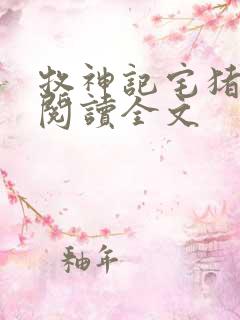 牧神記宅猪
閱讀全文
釉年